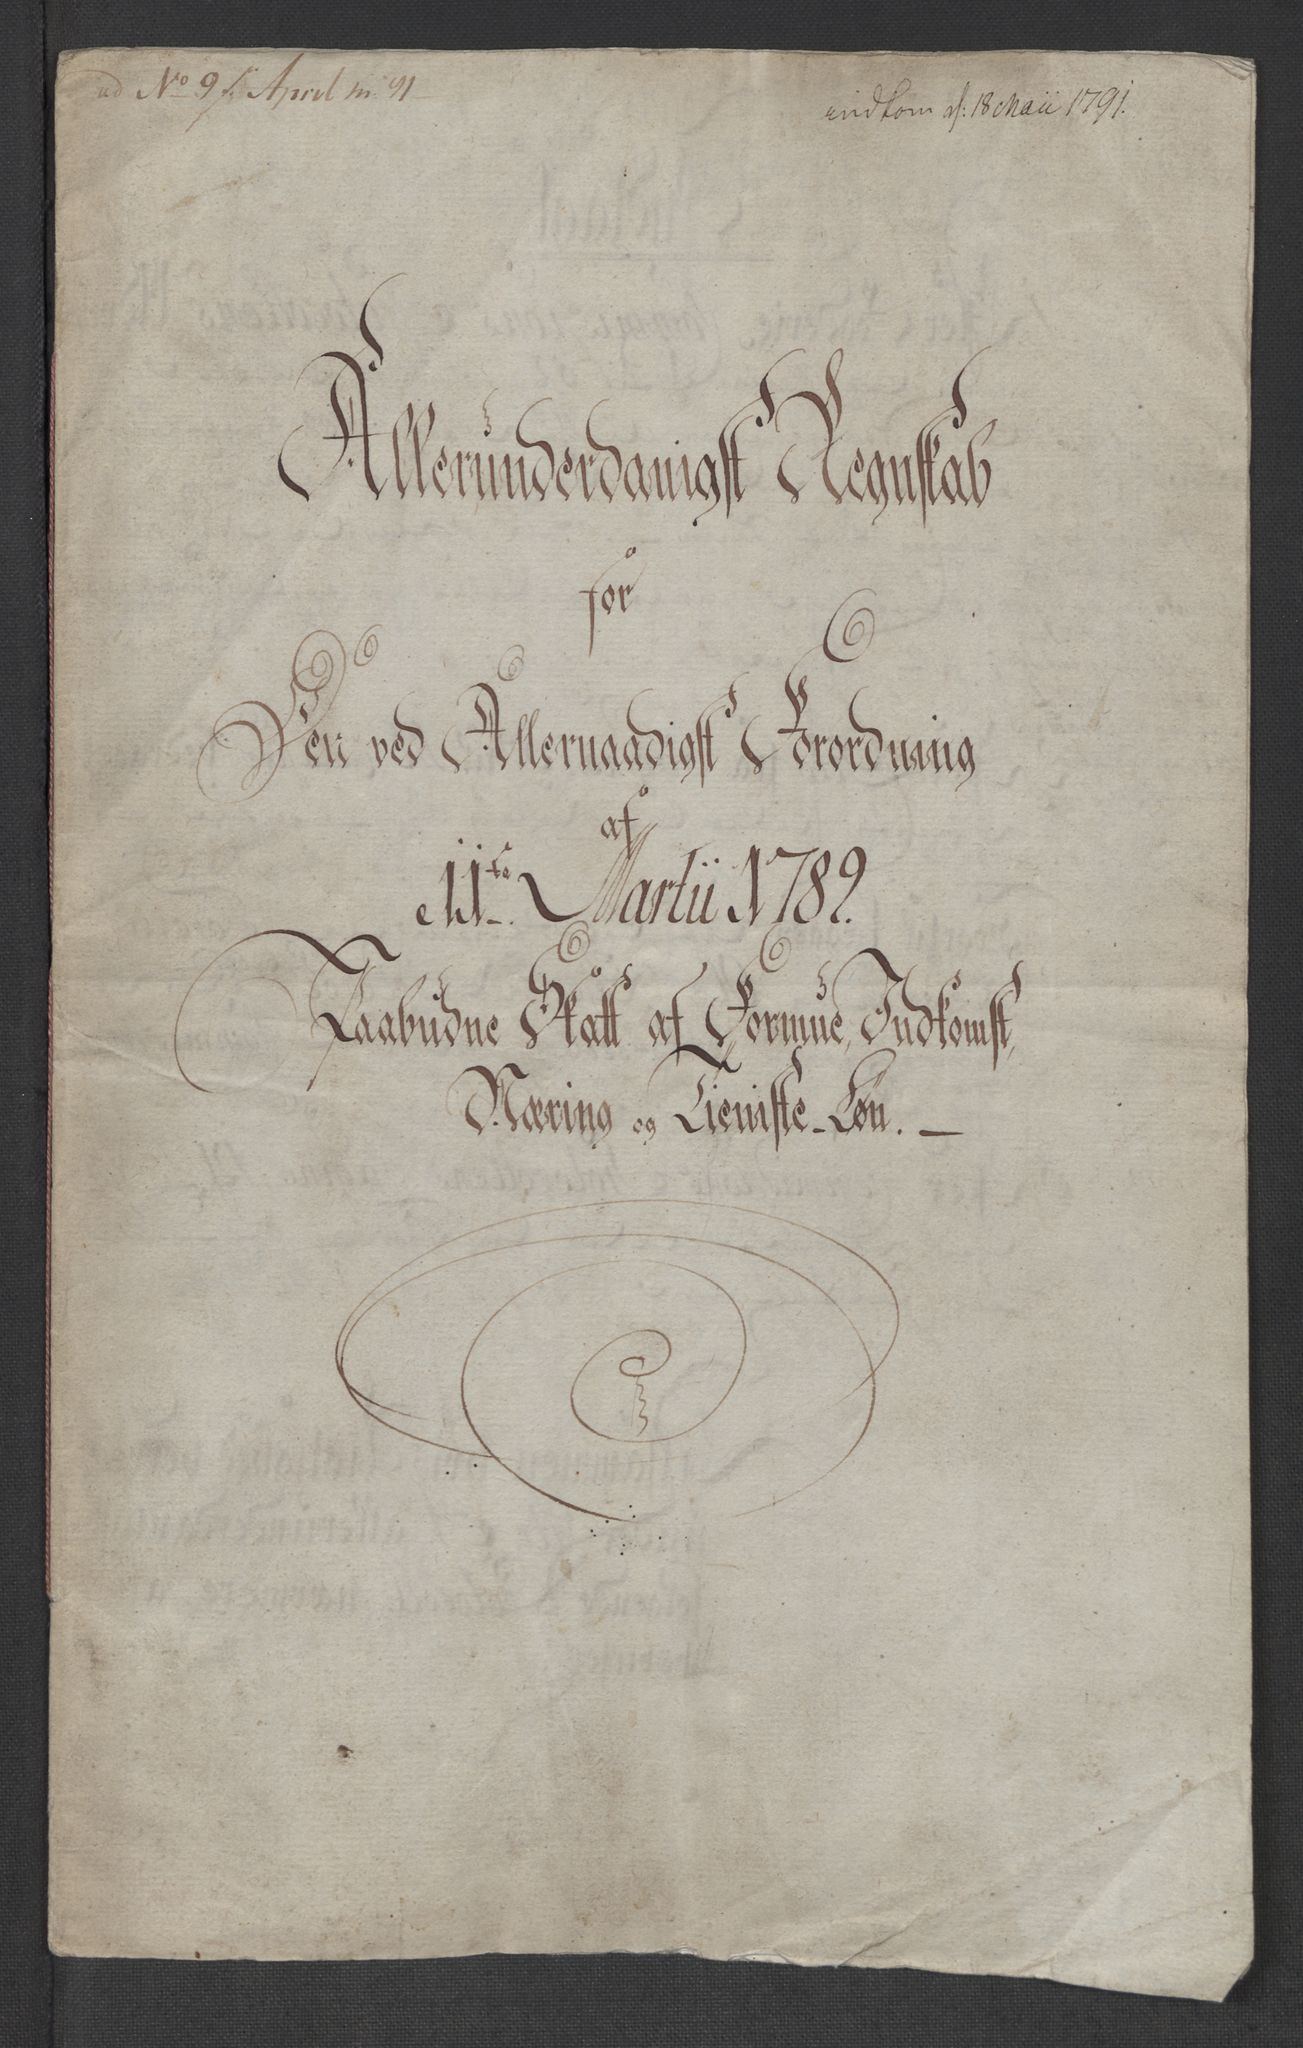 ad No 9 f. April m 91
indkom d: 18 Maii 1791.
Allerunderdanigst Regnskab
for
Den ved Allernaadigst Forordning
af
11te Martii 1789.
Paabudne Skatt af Formue, Indkomst,
Næring og Tieniste-Løn.